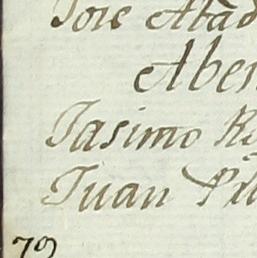 Jose Abad
Aben
Jasimo Ro
Juan Pi
79